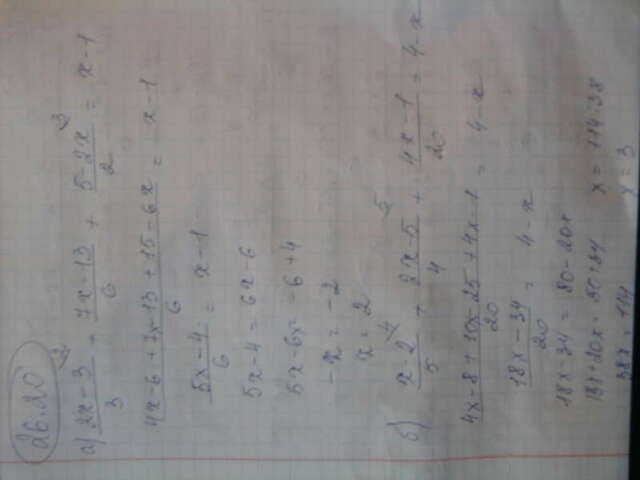 26.20
а) (2x-3)/3 + (7x-13)/6 + (5-2x)/2 = x-1
(4x-6+7x-13+15-6x)/6 = x-1
(5x-4)/6 = x-1
5x-4=6x-6
5x-6x=-6+4
-x=-2
x=2
б) (x-2)/5 + (2x-5)/4 + (4x-1)/20 = 4-x
(4x-8+10x-25+4x-1)/20 = 4-x
(18x-34)/20 = 4-x
18x-34=80-20x
18x+20x=80+34
38x=114
x=114:38
x=3